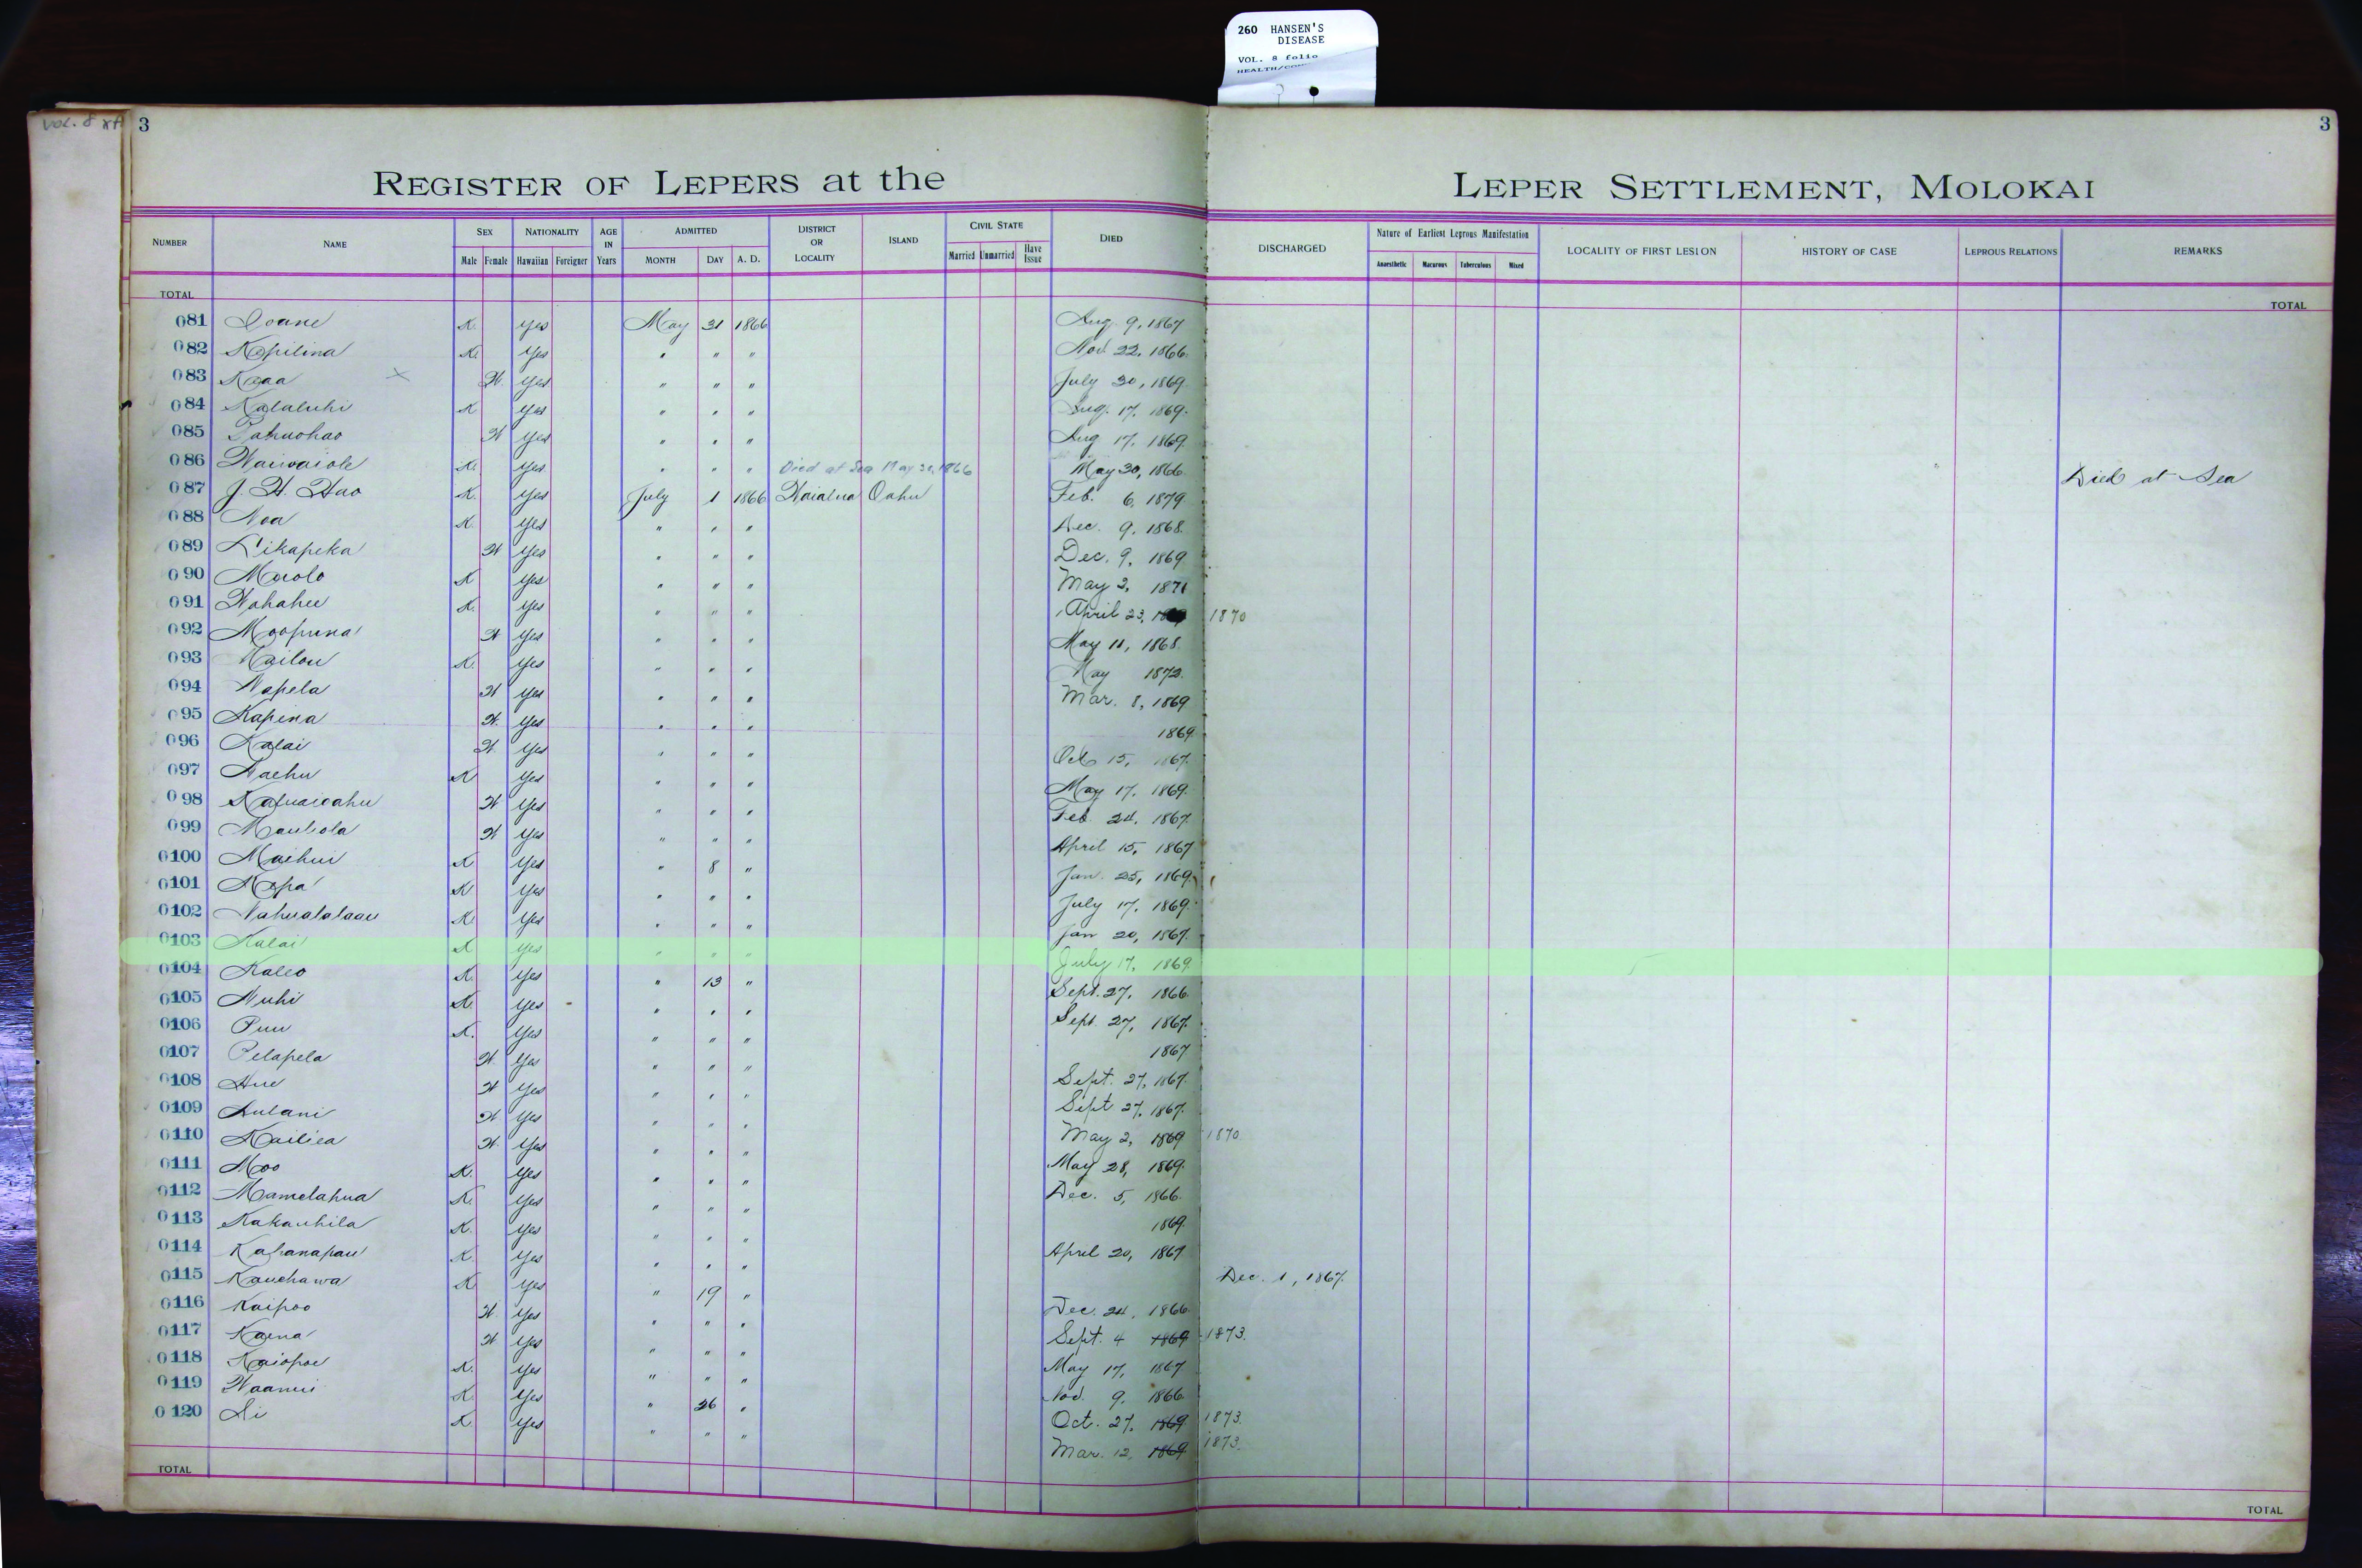 260 HANSEN'S
DISEASE
VOL. 8 folio
VOL. 8
3
3
REGISTER OF LEPERS at the LEPER SETTLEMENT, MOLOKAI
NUMBER NAME SEX Male Female NATIONALITY Hawaiian Foreigner AGE IN Years ADMITTED MONTH DAY A. D. DISTRICT OR LOCALITY ISLAND CIVIL STATE Married Unmarried Have Issue DIED DISCHARGED Nature of Earliest Leprous Manifestation Anaesthetic Macurous Tuberculous Mixed LOCALITY OF FIRST LESION HISTORY OF CASE LEPROUS RELATIONS REMARKS
TOTAL TOTAL
081 Ioane K. Yes May 31 1866 Aug. 9, 1867
082 Kapilina K. Yes " " " Nov. 22, 1866.
083 Kaaa × W. Yes " " " July 30, 1869.
084 Kalaluhi K Yes " " " Aug. 17, 1869.
085 Pahuohao W Yes " " " Aug 17, 1869.
086 Waiwaiole K. Yes " " " Died at Sea May 30, 1866 May 30, 1866. Died at Sea
087 J. H. Hao K. Yes July 1 1866 Waialua Oahu Feb. 6, 1879
088 Noa K. Yes " " " Dec. 9, 1868.
089 Likapeka W Yes " " " Dec. 9, 1869
090 Maolo K Yes " " " May 2, 1871
091 Wahahee K. Yes " " " April 23, 1870
092 Moopuna W Yes " " " May 11, 1868.
093 Kailou K. Yes " " " May 1872.
094 Napela W Yes " " " Mar. 8, 1869
095 Kapena W. Yes " " " 1869.
096 Kalai W Yes " " " Oct 15, 1867.
097 Naehu K Yes " " " May 17, 1869.
098 Kapuaioahu W Yes " " " Feb. 24, 1867.
099 Mauliola W Yes " " " April 15, 1867
0100 Maihui K Yes " 8 " Jan. 25, 1869.
0101 Napa K Yes " " " July 17, 1869.
0102 Nahualalaau K. Yes " " " Jan 20, 1867.
0103 Kalai K Yes " " " July 17, 1869.
0104 Kaleo K. Yes " 13 " Sept. 27, 1866.
0105 Nuhi K. Yes " " " Sept. 27, 1867.
0106 Puu K. Yes " " " 1867
0107 Pelapela W Yes " " " Sept. 27, 1867.
0108 Hue W Yes " " " Sept 27, 1867.
0109 Aulani W Yes " " " May 2, 1869 1870.
0110 Kailiea W Yes " " " May 28, 1869.
0111 Moo K. Yes " " " Dec. 5, 1866.
0112 Mamelahua K. Yes " " " 1869.
0113 Kakauhila K. Yes " " " April 20, 1867
0114 Kahanapau K. Yes " " " Dec. 1, 1867.
0115 Kauehawa K. Yes " 19 " Dec. 24, 1866.
0116 Kaipoo W Yes " " " Sept. 4 1869 1873.
0117 Kaena W Yes " " " May 17, 1867
0118 Kaiopoe K. Yes " " " Nov. 9, 1866.
0119 Waanui K Yes " 26 " Oct. 27, 1869 1873.
0120 Ai K. Yes " " " Mar. 12, 1869 1873.
TOTAL TOTAL